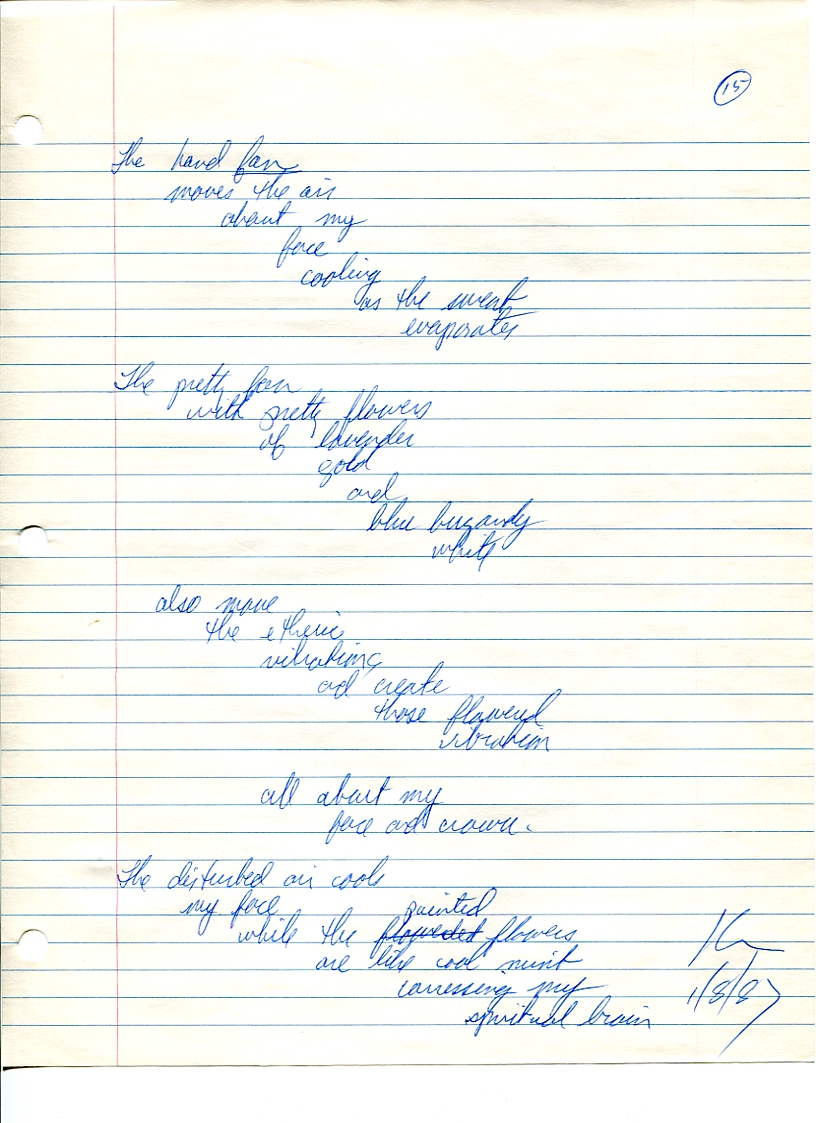 15
The hand fan
moves the air
about my
face
cooling
as the sweat
evaporates
The pretty fan
with pretty flowers
of lavender
gold
and
blue bugandy
white
also move
the etheric
vibrations
ad create
those flowered
vibration
all about my
face and crown.
The disturbed air cools
my face
painted
while the flowered flowers
are like cool mint
carressing my
spiritual brain
1/8/87